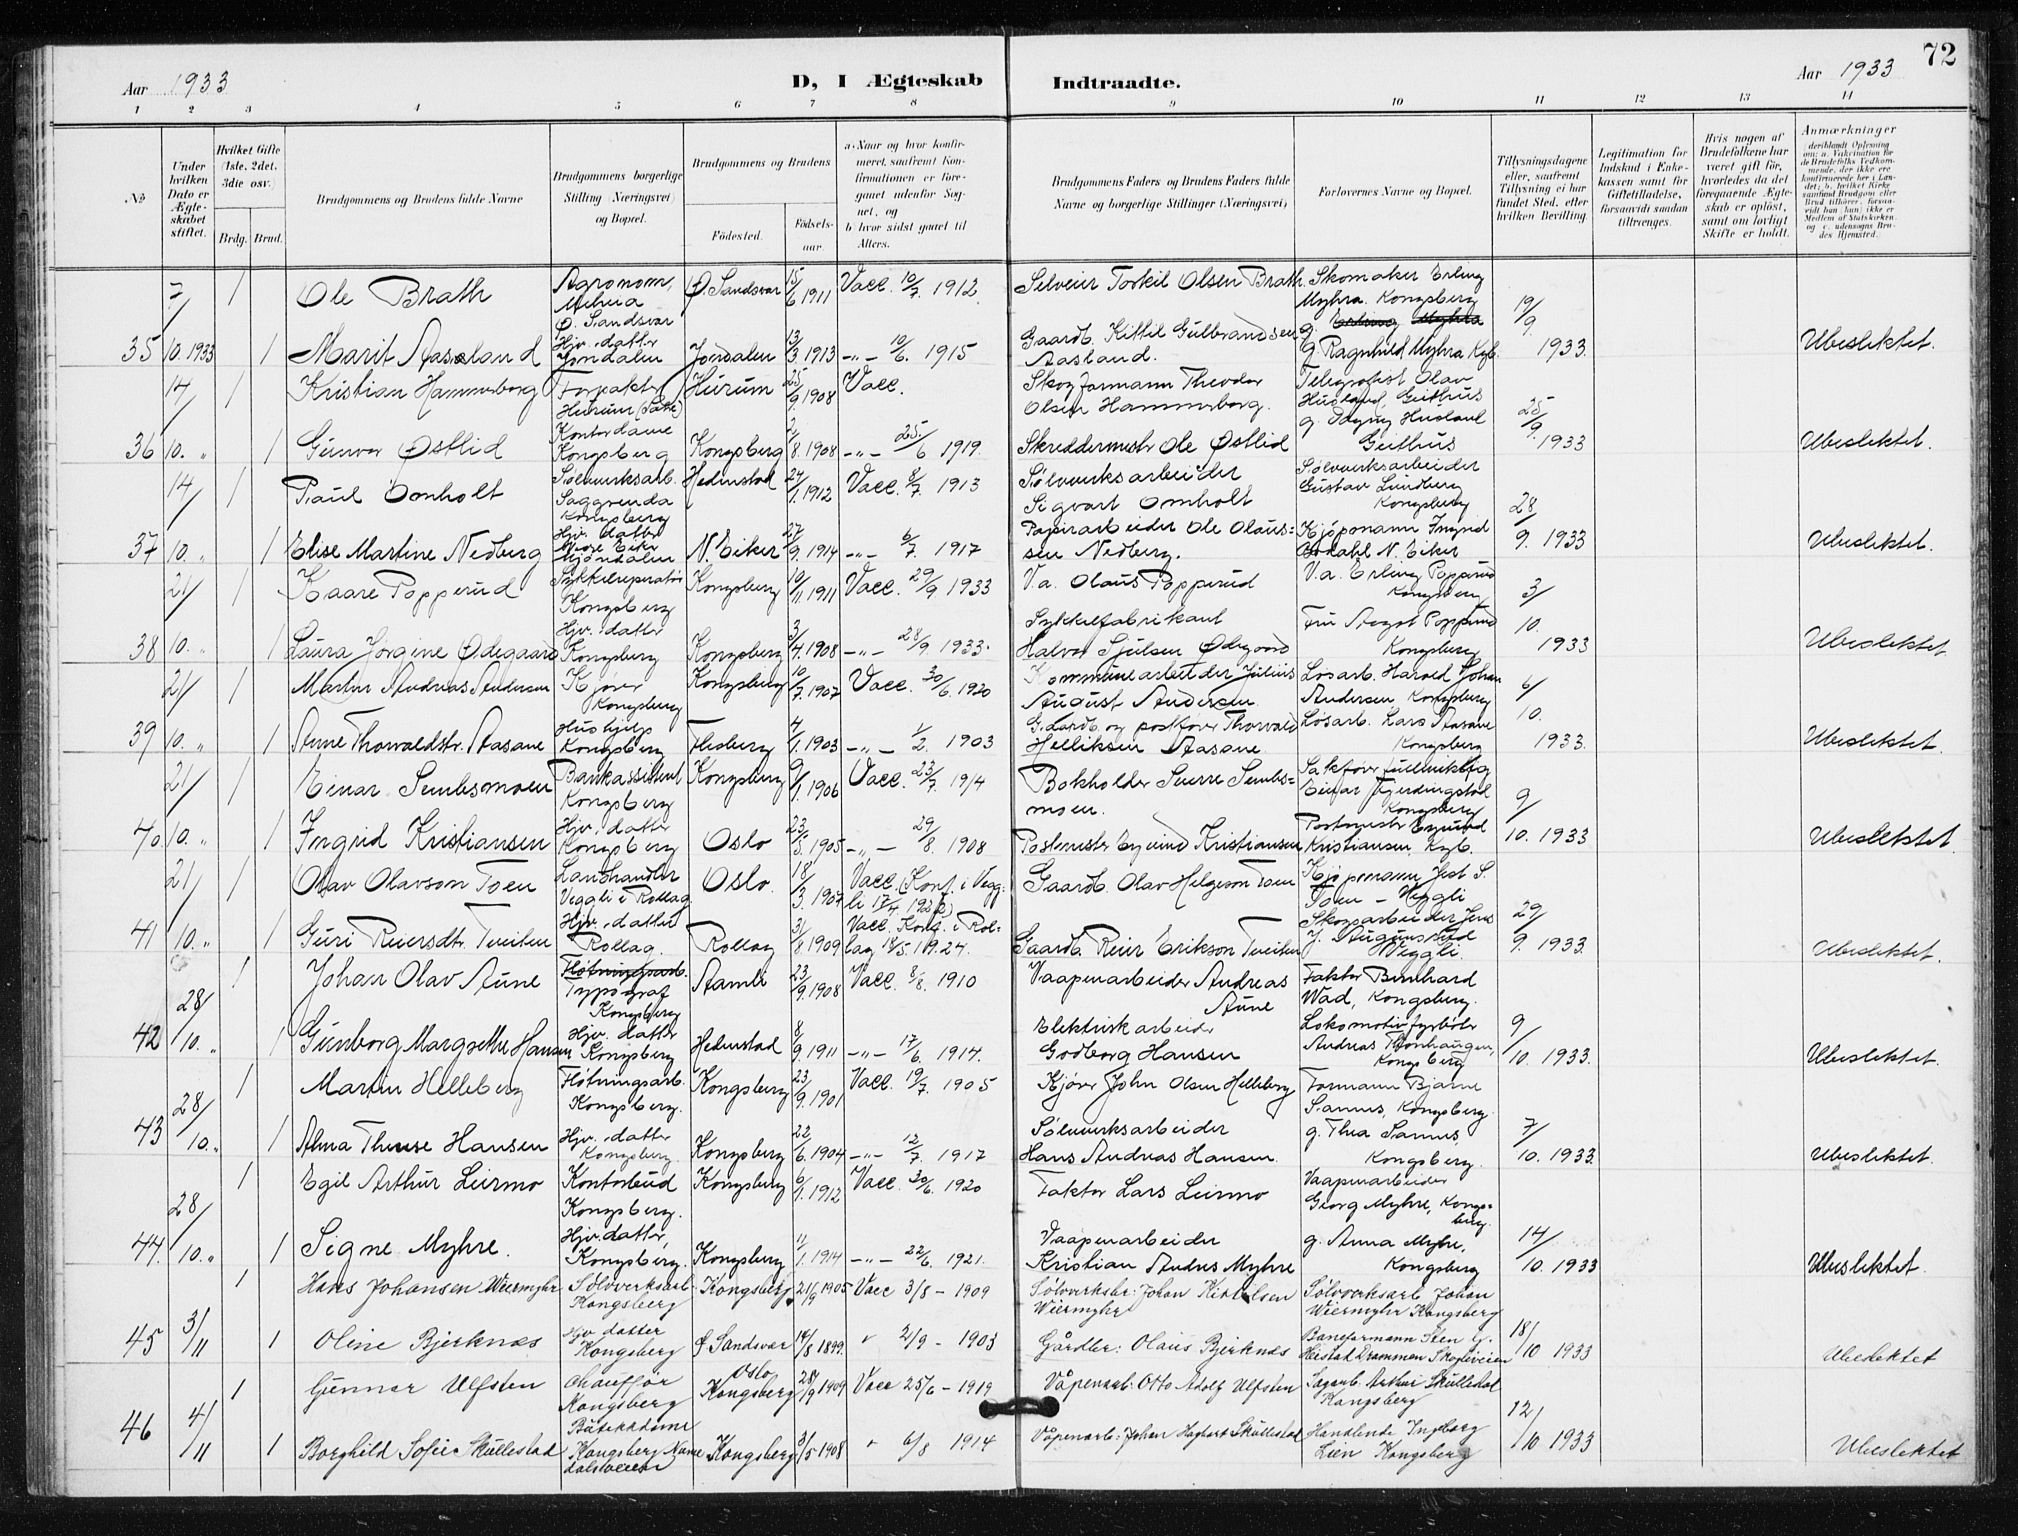 72
Aar 1933
D, I Ægteskab Indtraadte.
Aar 1933
1 2 3 4 5 6 7 8 9 10 11 12 13 14
No
Under hvilken Dato er Ægteskabet stiftet.
Hvilket Gifte (1ste, 2det, 3die osv.)
Brdg. Brud.
Brudgommens og Brudens fulde Navne
Brudgommens borgerlige Stilling (Næringsvei) og Bopæl.
Brudgommens og Brudens
Fødested.
Fødselsaar.
a. Naar og hvor konfirmeret, saafremt Konfirmationen er foregaaet udenfor Sognet, og
b. hvor sidst gaaet til Alters.
Brudgommens Faders og Brudens Faders fulde Navne og borgerlige Stillinger (Næringsvei)
Forlovernes Navne og Bopæl.
Tillysningsdagene eller, saafremt Tillysning ei har fundet Sted, efter hvilken Bevilling.
Legitimation for Indskud i Enkekassen samt for Giftetilladelse, forsaavidt saadan tiltrænges.
Hvis nogen af Brudefolkene har været gift før, hvorledes da det foregaaende Ægteskab er opløst, samt om lovligt Skifte er holdt.
Anmærkninger
deriblandt Oplysning om: a. Vakcination for de Brudefolks Vedkommende, der ikke ere konfirmerede her i Landet; b. hvilket Kirkesamfund Brudgom eller Brud tilhører, forsaavidt han (hun) ikke er Medlem af Statskirken, og c. udensogns Brudes Hjemsted.
7/ 1 Ole Brath Agronom, Ø. Sandsvær 15/6 1911 Vacc. 10/7 1912. Torkil Olsen Brath. Skomaker Erling Myhra. Kongsberg
Ø. Sandsvær
35 10. 1933 1 Marit Aasland Hjv. datter Jondalen Jondalen 13/3 1913 -"- 10/6. 1915 Gaardb. Kittil Gulbrandsen Aasland. g. Ragnhild Myhra Kgb. 19/9. 1933. Ubeslektet.
14/ 1 Kristian Hammersborg Forpakter Hurum Hurum 25/9. 1908 Vacc. Theodor Olsen Hammersborg. Telegrafist Olav Husland, Geithus
36 10. " 1 Gunvor Østlid Kontordame Kongsberg Kongsberg 2/8. 1908 -"- 25/6 1919. Skreddermestr Ole Østlid g. Dagny Husland Geithus 25/9. 1933 Ubeslektet.
14/ 1 Paul Omholt Sølvverksarb. Saggrenda Kongsberg Hedenstad 24/1. 1912 Vacc. 8/7. 1913 Sølvverksarbeider Sigvart Omholt Sølvverksarbeider Gustav Lundberg Kongsberg
37 10. " 1 Elise Martine Nedberg Hjv. datter Nedre Eiker Mjøndalen N. Eiker 27/9. 1914 -"- 6/7. 1917 Papirarbeider Ole Olaussen Nedberg. Kjøpmann N. Eiker 28/9. 1933 Ubeslektet.
21/ 1 Kaare Popperud Sykkelreparatør Kongsberg Kongsberg 10/11. 1911 Vacc. 29/9. 1933 V.a. Olaus Popperud V.a. Erling Popperud Kongsberg
38 10. " 1 Laura Jørgine Ødegaard Hjv. datter Kongsberg Kongsberg 3/4. 1908 -"- 28/9 1933. Sykkelfabrikant Halvor Ødegaard Fru Popperud Kongsberg 3/10. 1933 Ubeslektet
21/ 1 Martin Andreas Andersen Kjører Kongsberg Kongsberg 10/7. 1907 Vacc. 30/6. 1920 Kommunearbeider Julius August Andersen Løsarb. Harald Johan Andersen Kongsberg
39 10. " 1 Anne Thorvaldstr. Aasane Hushjelp Kongsberg Flesberg 4/1. 1903 -"- 1/2. 1903 Gaardb. og postfører Thorvald Helliksen Aasane. Løsarb. Lars Aasane Kongsberg 6/10. 1933. Ubeslektet.
21/ 1 Einar Sembsmoen Bankassistent Kongsberg Kongsberg 9/1. 1906 Vacc. 23/7. 1914 Bokholder Sverre Sembsmoen. Sakfører Einar Gjerdingstad Kongsberg
40 10. " 1 Ingrid Kristiansen Hjv. datter Kongsberg Oslo 23/5. 1905 -"- 29/8. 1908 Postmester Eyvind Kristiansen Postmester Eyvind Kristiansen, Kgb. 9/10. 1933 Ubeslektet.
21/ 1 Olav Olavson Toen Landhandler Veggli i Rollag Oslo 18/3. 1907 Vacc. (Konf. i Veggli 17/4 1922) Gaardb. Olav Helgeson Toen Kjøpmann S. Toen - Veggli
41 10. " 1 Guri Reiersdtr. Tveiten Hjv. datter Rollag. Rollag 3/8. 1909 Vacc. Konf. i Rollag 18/5. 1924. Gaardb. Reier Erikson Tveiten Skogsarbeider Jens J. Veggli 29/9. 1933. Ubeslektet.
1 Johan Olav Aune Fløtningsarb. Typograf Kongsberg Aamli 23/9. 1908 Vacc. 8/8. 1910 Vaapenarbeider Andreas Aune Faktor Bernhard Wad, Kongsberg.
42 28/10. " 1 Gunborg Margrethe Hansen Hjv. datter Kongsberg Hedenstad 8/9. 1911 -"- 17/6. 1914. Elektriskarbeider Godborg Hansen Lokomotivfyrbøter Andreas Kongsberg 9/10. 1933. Ubeslektet.
1 Martin Helleberg Fløtningsarb. Kongsberg. Kongsberg 23/9. 1901 Vacc. 19/7. 1905 Kjører John Olsen Helleberg Formann Bjarne Samus, Kongsberg.
43 28/10. " 1 Alma Therese Hansen Hjv. datter Kongsberg. Kongsberg 22/6. 1904 -"- 12/7. 1917 Sølvverksarbeider Hans Andreas Hansen. g. Thea Samus, Kongsberg. 7/10. 1933. Ubeslektet.
1 Egil Arthur Lurmo Kontorbud Kongsberg. Kongsberg 6/1. 1912 Vacc. 30/6. 1920 Faktor Lars Lurmo Vaapenarbeider Georg Myhre, Kongsberg.
44. 28/10. " 1 Signe Myhre. Hjv. datter, Kongsberg. Kongsberg 11/1. 1914 -"- 22/6. 1921. Vaapenarbeider Kristian Andreas Myhre g. Anna Myhre, Kongsberg 14/10. 1933 Ubeslektet.
1 Hans Johansen Wiermyhr Sølvverksarb. Kongsberg Kongsberg 21/9 1905 Vacc 3/8 - 1909 Sølvverksbr. Johan Kittilsen Wiermyhr Sølvverksarb Johan Wiermyhr Kongsberg
45 3/11 1 Oline Bjerknæs Hjv. datter Kongsberg Ø Sandsvær 14/8 1899. " 2/9 - 1903 Gårdbr: Olaus Bjerknæs Baneformann Sten G. Heistad Drammen Skogliveien 18/10 1933 Ubeslektet
1 Gunnar Ulfsten Chauffør Kongsberg Oslo Kongsberg 28/9 1909 Vacc 25/6 - 1919 Våpenarb: Otto Adolf Ulfsten Sagarb. Arthur Skullestad Kongsberg
46 4/11 1 Borghild Sofie Skullestad Butikkdame Kongsberg Numedalsveien Kongsberg 3/5 1908 " 6/8 1914 Våpenarb: Johan Hagbart Skullestad Handlende Ingeborg Lien Kongsberg 12/10 1933 Ubeslektet